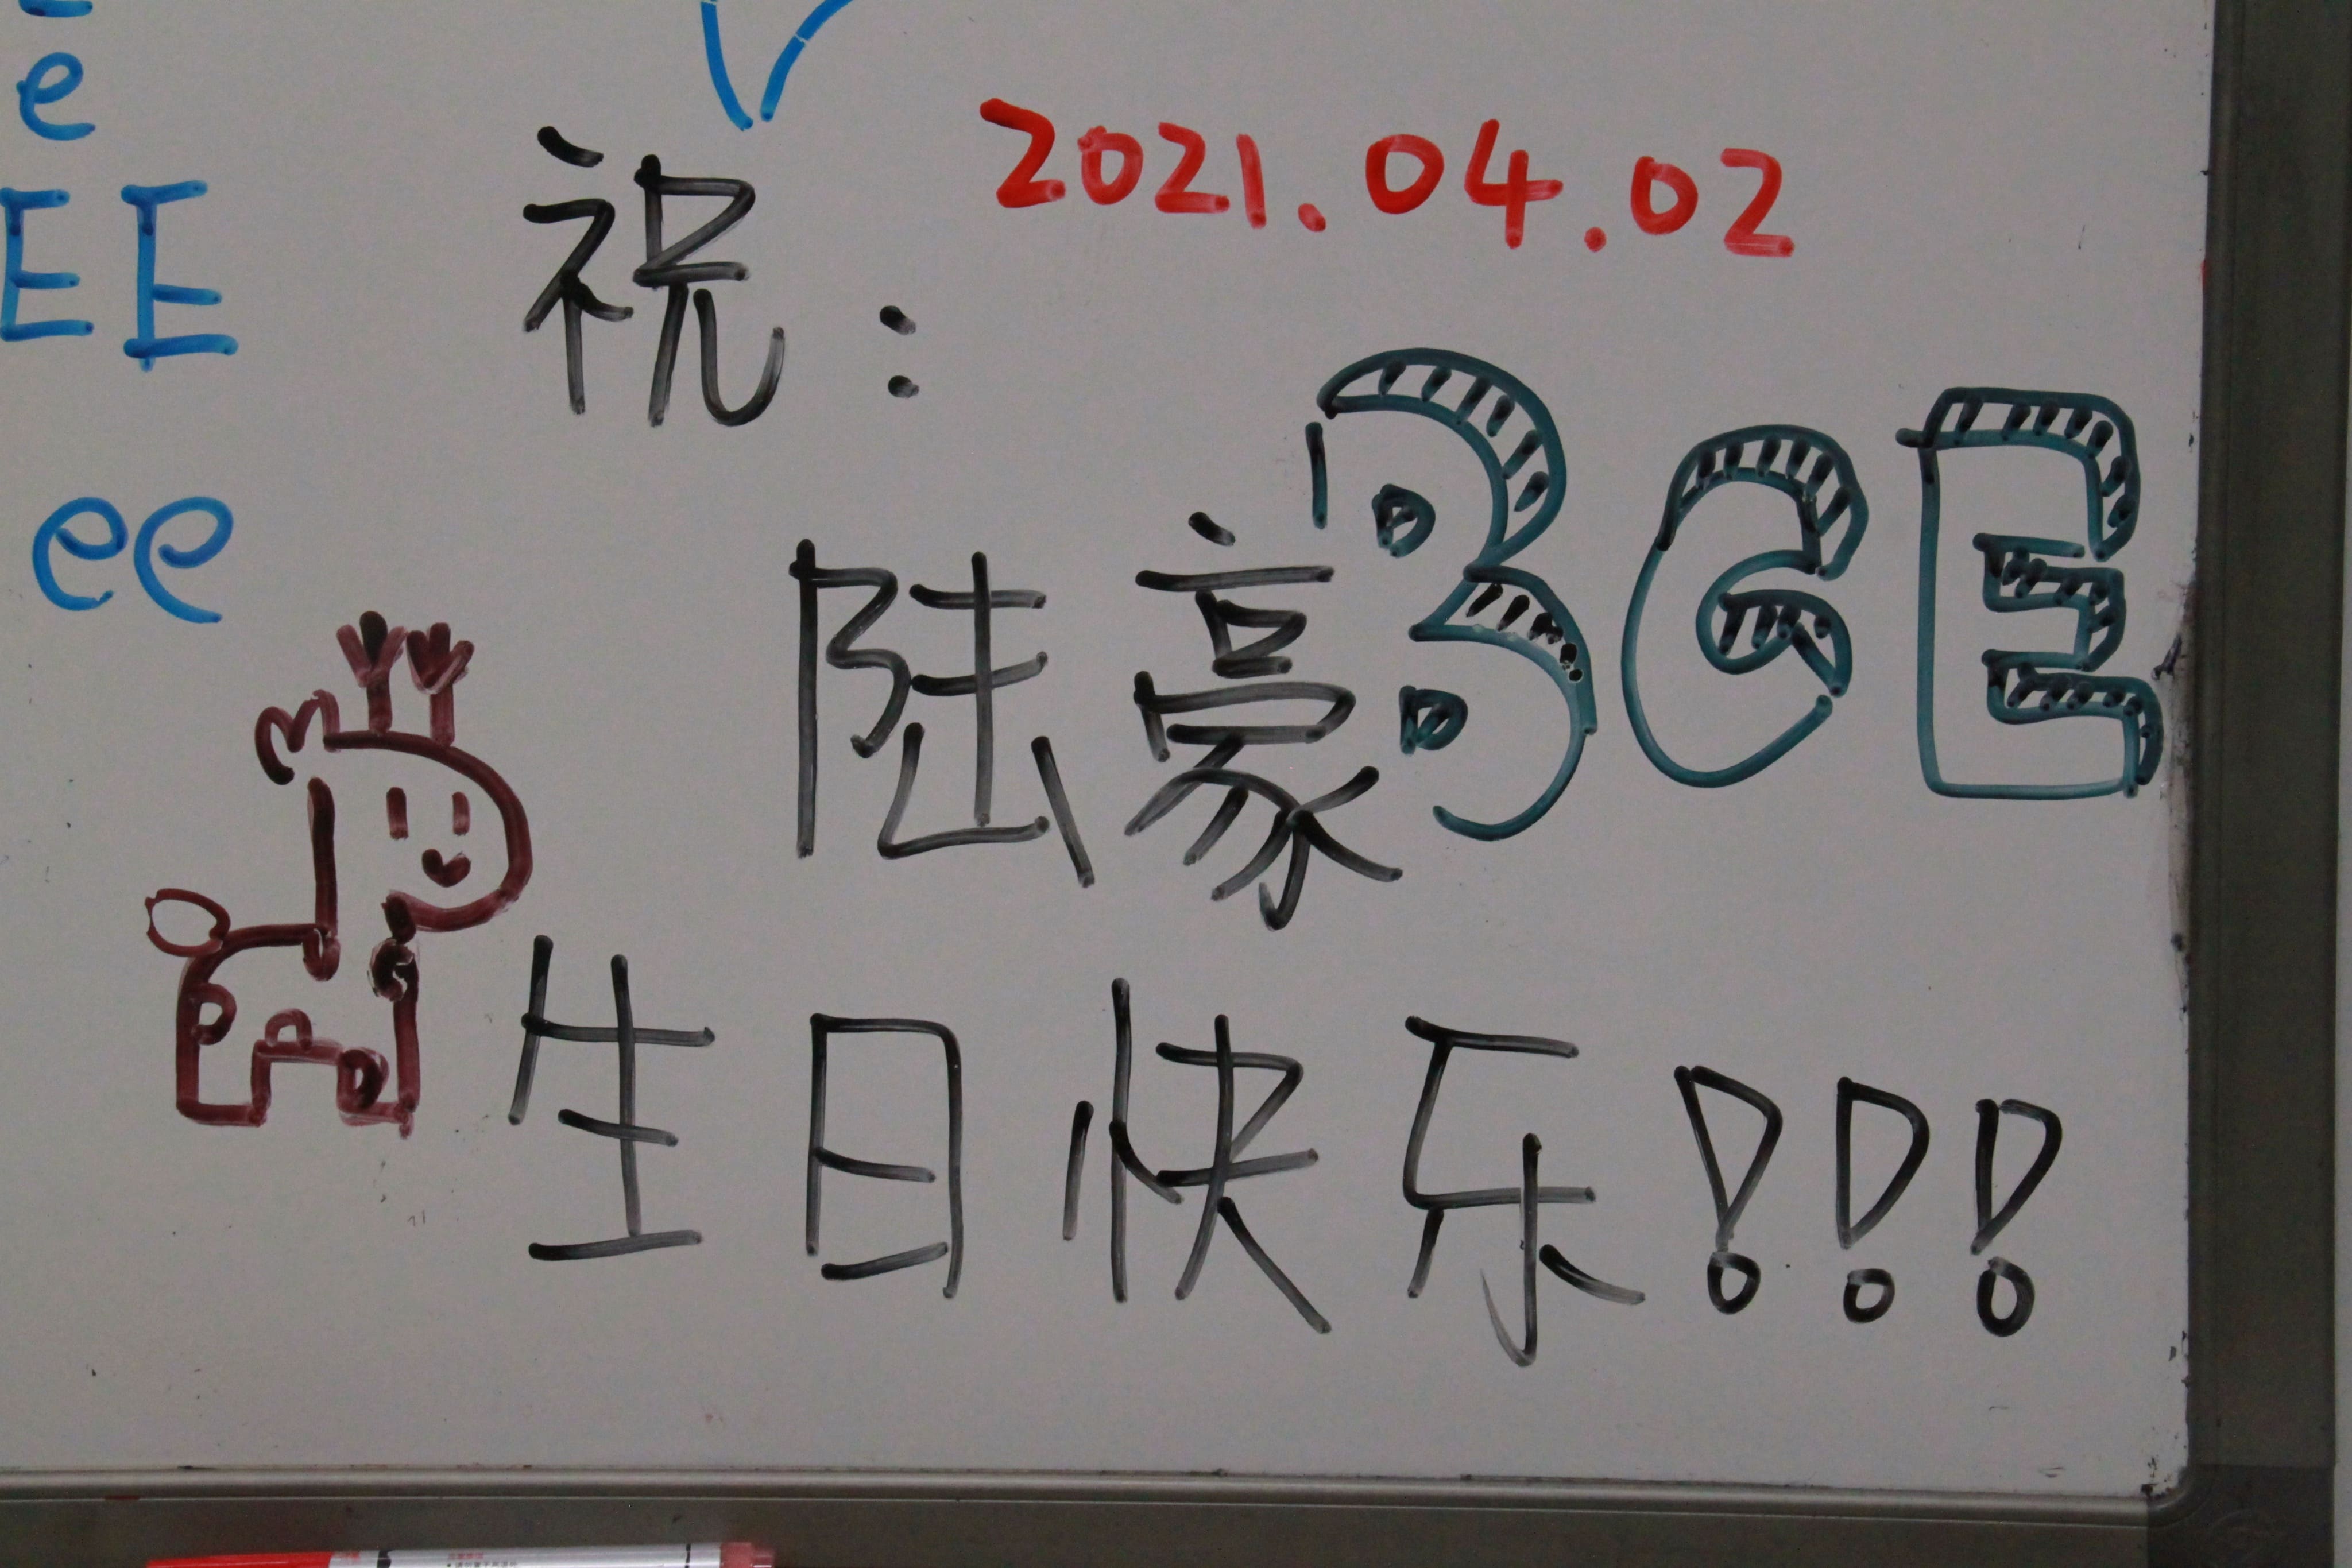 e
EE
ee
2021.04.02
祝:
陆豪BGE
生日快乐!!!